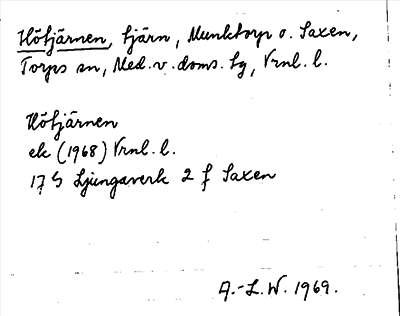 Hötjärnen, tjärn, Munktorp o. Saxen,
Torps sn, Med. v. doms. tg, Vrnl. l.
Hötjärnen
ek (1968) Vrnl. l.
17 S Ljungaverk 2 f Saxen
A.-L. W. 1969.